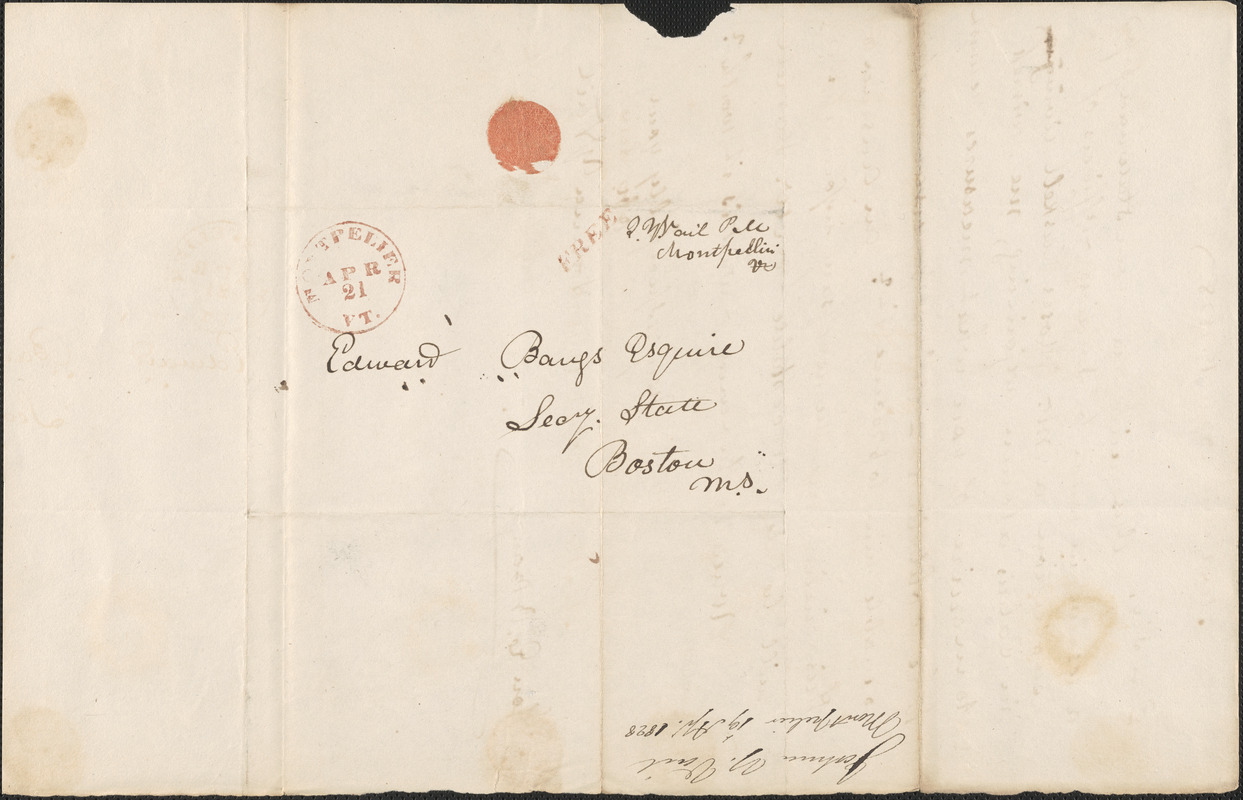 MONTPELIER
APR
21
VT.
FREE
J. Y. Vail P.M.
Montpelier
Vt
Edward Bangs Esquire
Secy. State
Boston
Ms.
Joshua Y. Vail
Montpelier 19 Apl. 1828